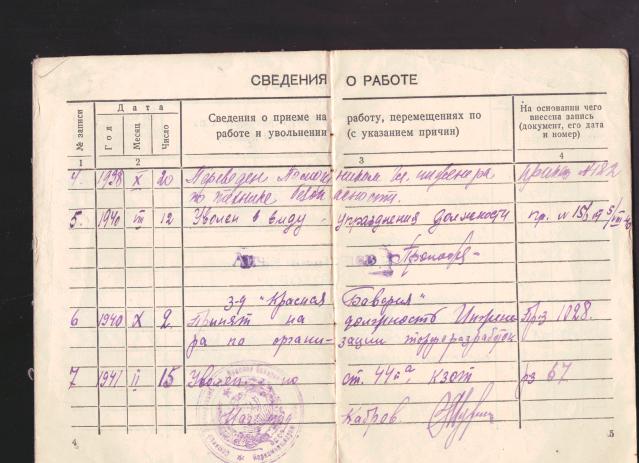 СВЕДЕНИЯ О РАБОТЕ
№ записи
Дата
Год
Месяц
Число
Сведения о приеме на работу, перемещениях по
работе и увольнении (с указанием причин)
На основании чего
внесена запись
(документ, его дата
и номер)
1 2 3 4
4. 1938 X 20 Переведен Помощником Гл. инженера Приказ №122
по технике безопасности.
5. 1940 III 12 Уволен в виду упразднения должности пр. №
З-д "Красная Бавария"
6 1940 X 2. Принят на должность Инжене- Прз 1028.
ра по организации торфоразработок
7 1941 II 15 Уволен по ст. 44 п а, КЗОТ рз 67
Кадров
4 5